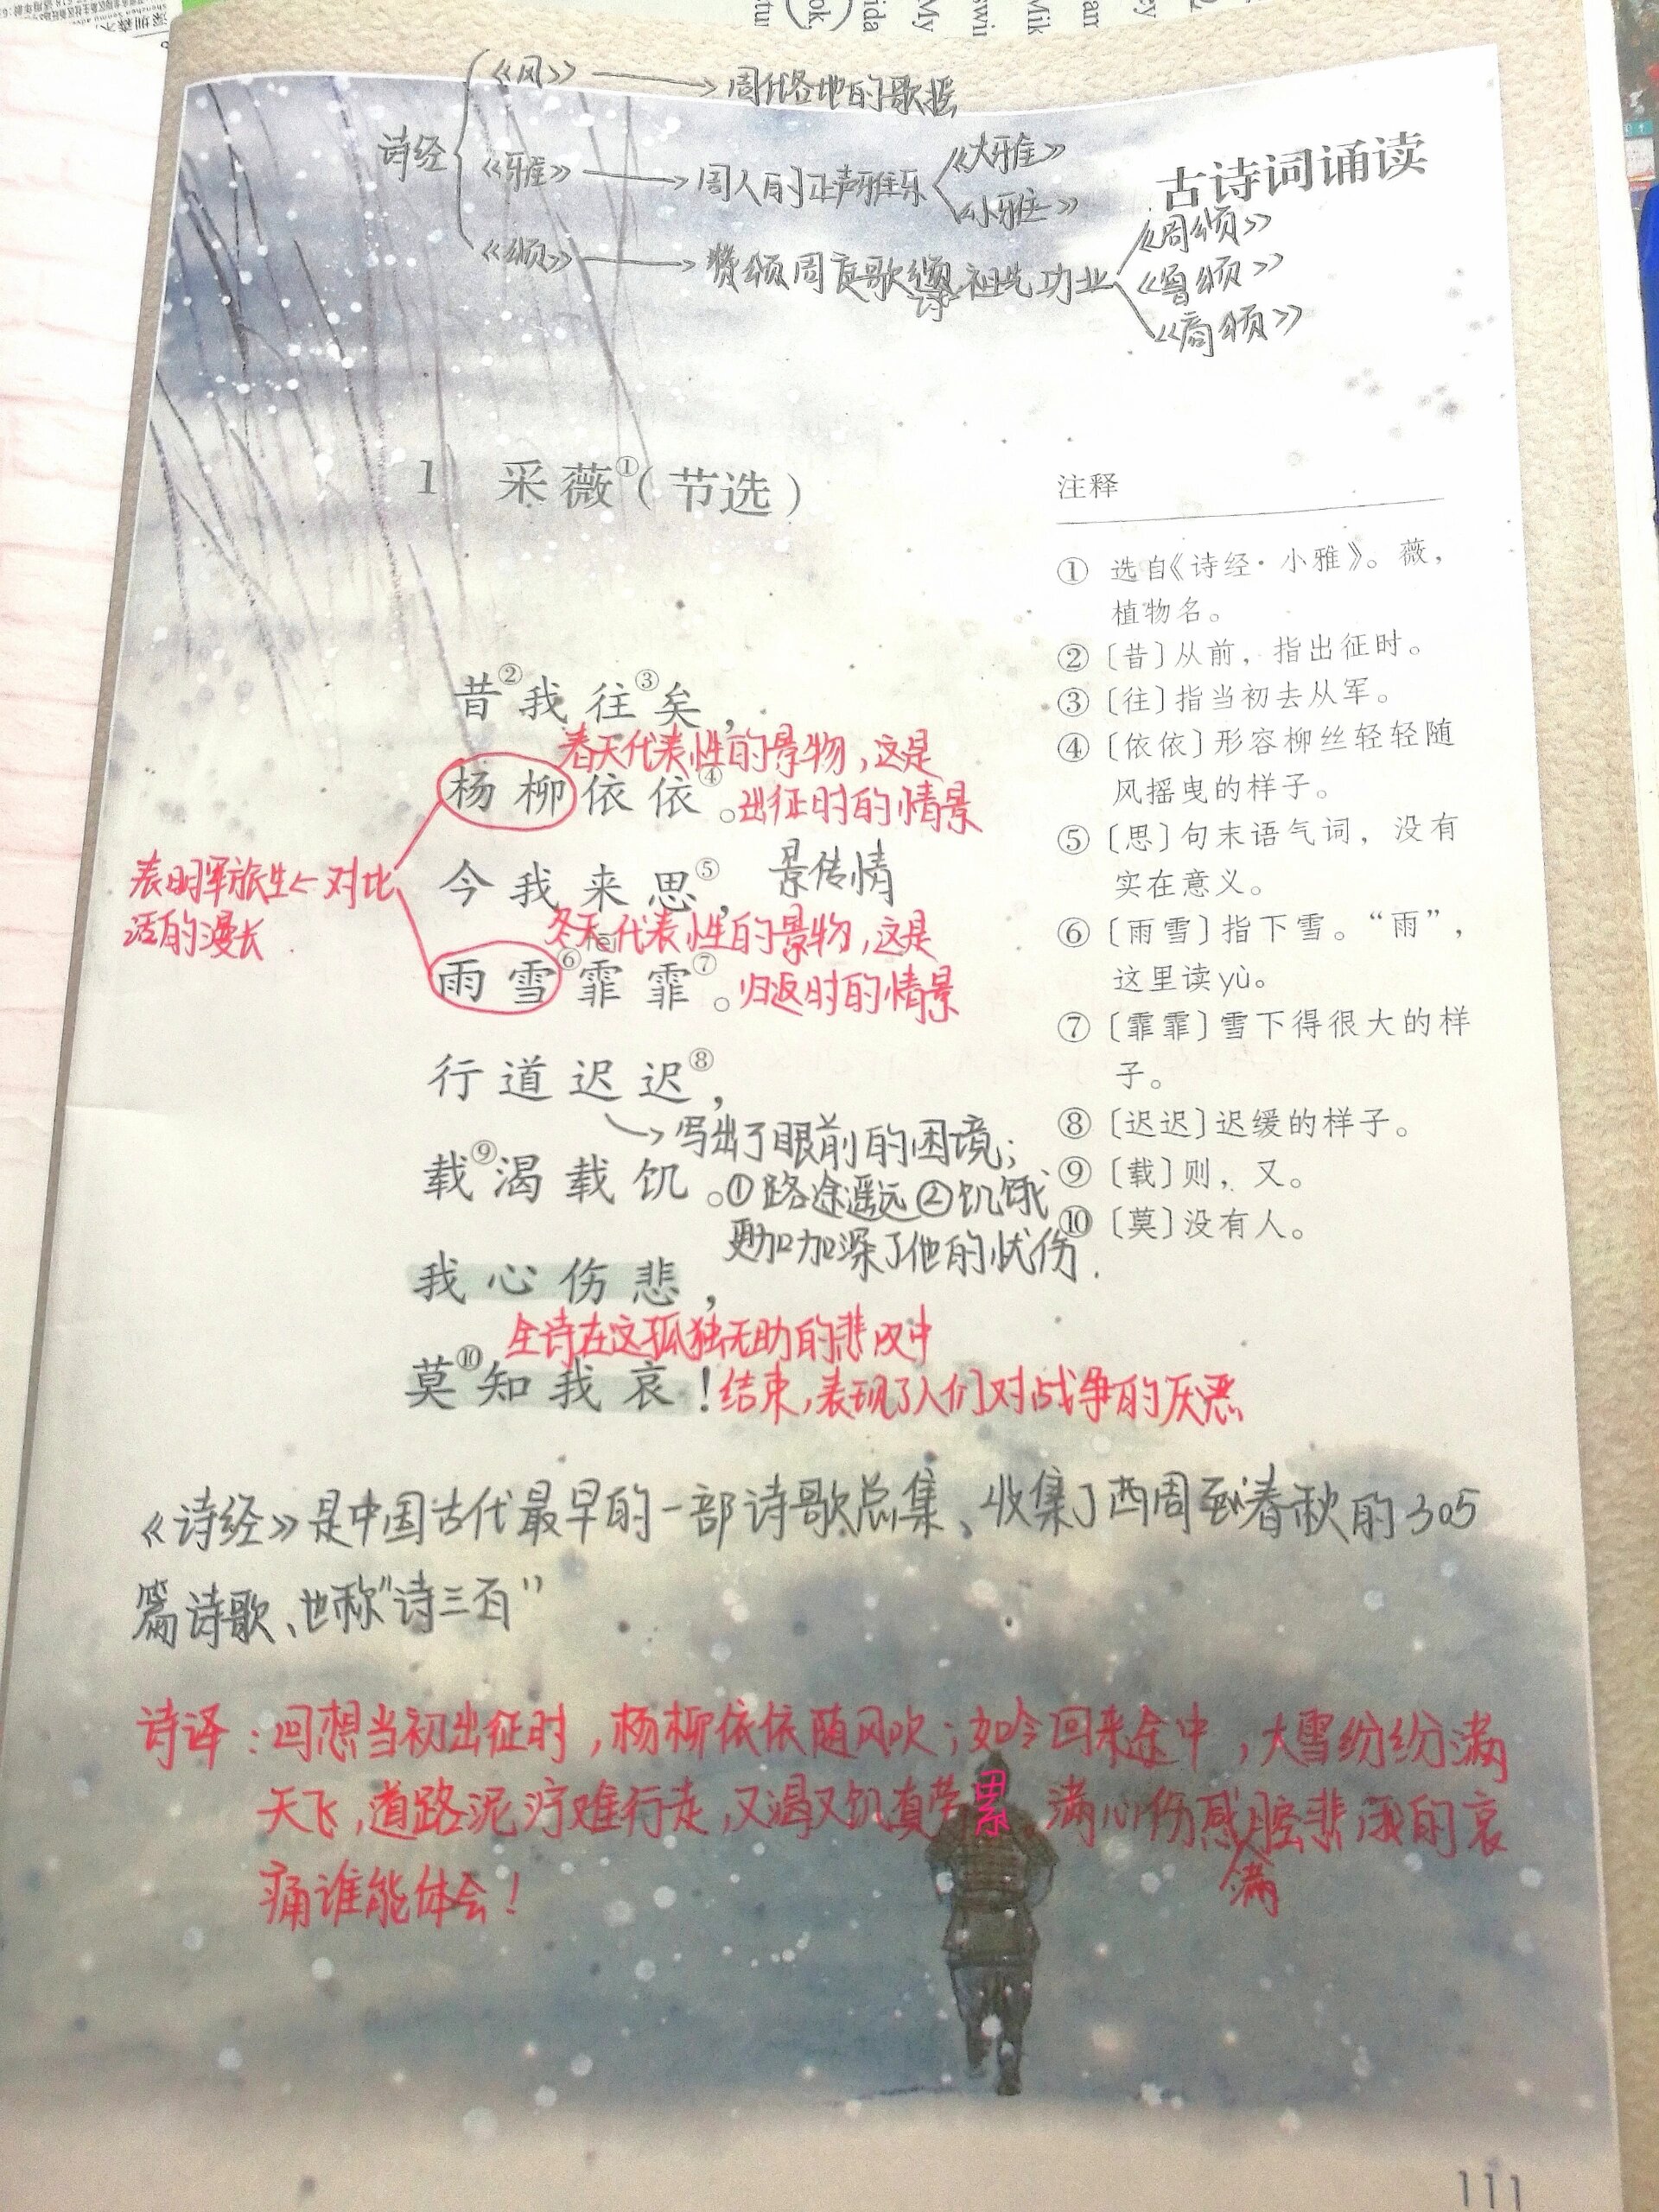 诗经
《风》 → 周代各地的歌摇
《雅》 → 周人的正声雅乐
《大雅》
《小雅》
《颂》 → 赞颂周庭歌颂祖先功业
诗
《周颂》
《鲁颂》
《商颂》
古诗词诵读
1 采薇①（节选）
昔②我往③矣，
春天代表性的景物，这是
杨柳依依④。出征时的情景
今我来思⑤，景传情
冬天代表性的景物，这是
雨雪⑥霏霏⑦。归返时的情景
表明军旅生←对比
活的漫长
行道迟迟⑧，
→写出了眼前的困境；
载⑨渴载饥。①路途遥远②饥饿
更加加深了他的忧伤.
我心伤悲，
全诗在这孤独无助的悲叹中
莫⑩知我哀！结束，表现了人们对战争的厌恶
注释
① 选自《诗经·小雅》。薇，
植物名。
② 〔昔〕从前，指出征时。
③ 〔往〕指当初去从军。
④ 〔依依〕形容柳丝轻轻随
风摇曳的样子。
⑤ 〔思〕句末语气词，没有
实在意义。
⑥ 〔雨雪〕指下雪。“雨”，
这里读yù。
⑦ 〔霏霏〕雪下得很大的样
子。
⑧ 〔迟迟〕迟缓的样子。
⑨ 〔载〕则，又。
⑩ 〔莫〕没有人。
《诗经》是中国古代最早的一部诗歌总集、收集了西周到春秋的305
篇诗歌、也称“诗三百”
诗译：回想当初出征时，杨柳依依随风吹；如今回来途中，大雪纷纷满
天飞，道路泥泞难行走，又渴又饥真劳累 满心伤感腔悲我的哀
满
痛谁能体会！
111